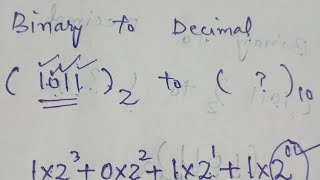 Binary to Decimal
(1011)₂ to (?)₁₀
1x2³+0x2²+1x2¹+1x2⁰